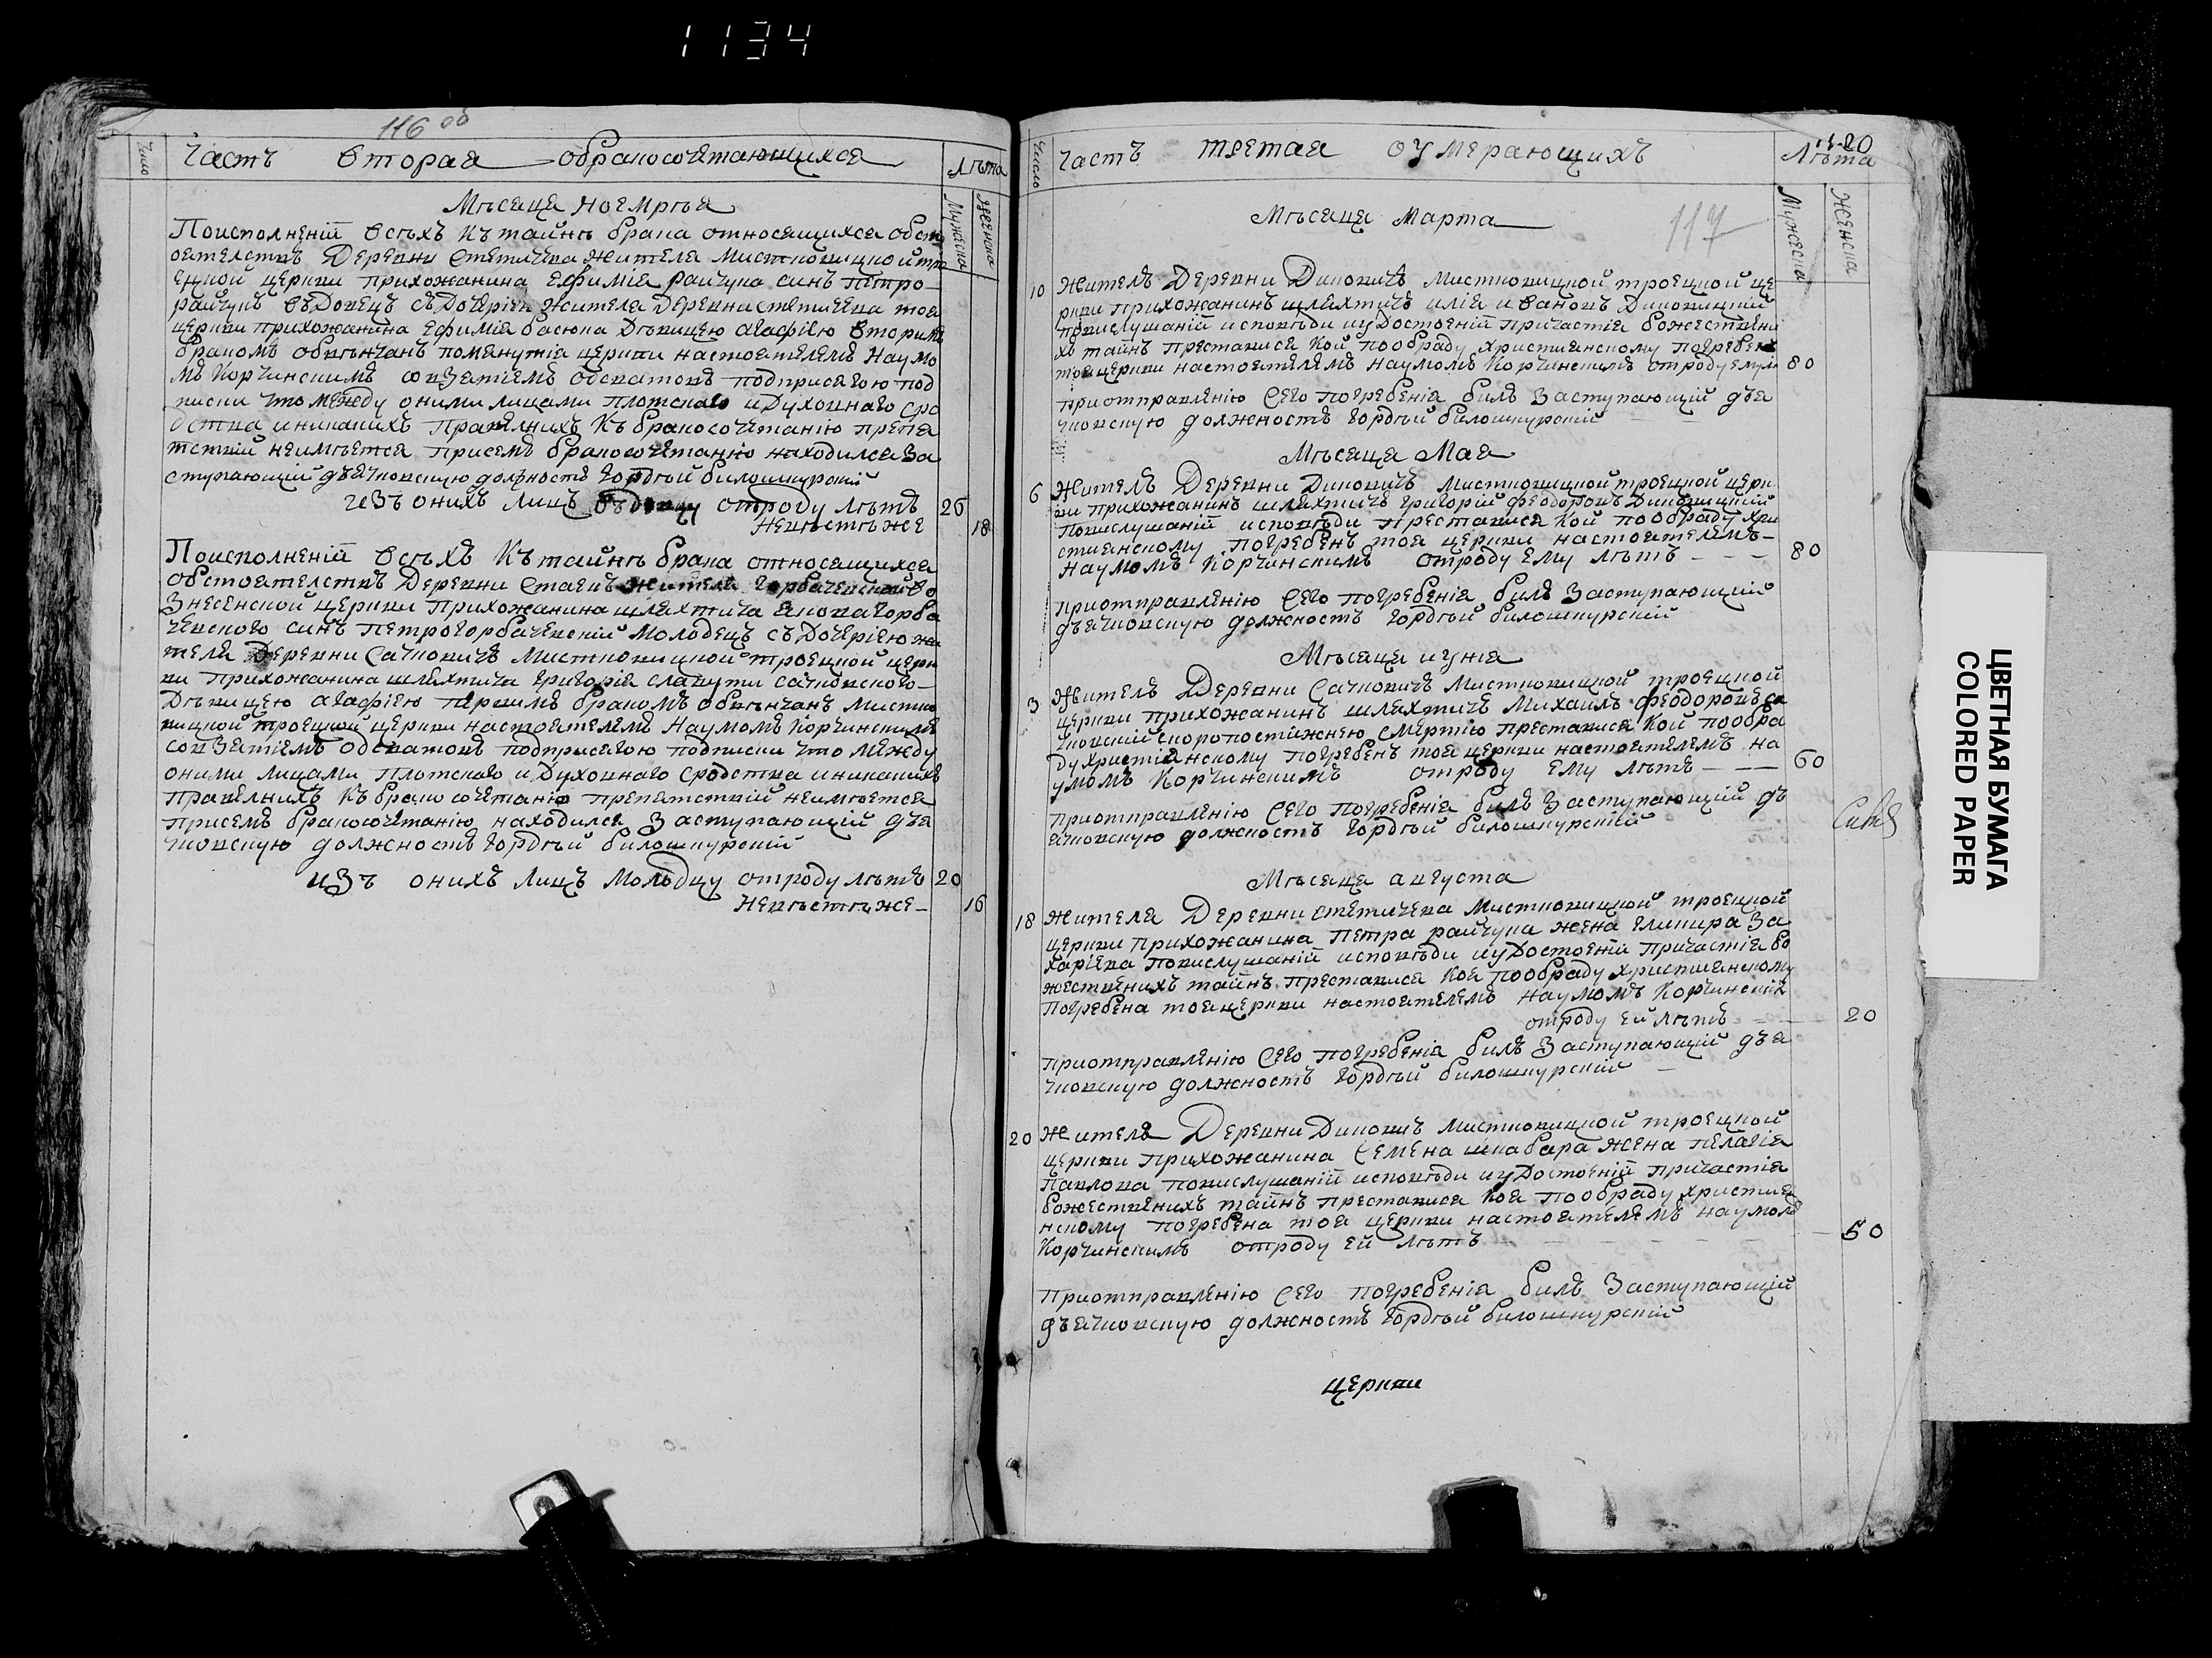 1134
116 об
Число
Часть Вторая о бракосочетающихся
Лѣта
Мужеска
Женска
Мѣсяца ноемрія
Поисполненій всѣхъ къ тайнѣ брака относящихся обст
оятелствъ Деревни Стетичева жителя Мистковицкой тр
ецкой церкви прихожанина Ефимія райчука синъ Петро
райчукъ въдовецъ съ дочерію жителя Деревни стетичева тоя
церкви прихожанина Ефимія басюка Дѣвицею агафіею вторимъ
бракомъ обвѣнчанъ помянутія церкви настоятелемъ Наумо
мъ Корчинскимъ совзятіемъ обсватовъ подприсягою под
писки что между оними лицами плотскаго и Духовнаго сро
дства иникакихъ правелнихъ къ бракосочетанію препя
тствій неимѣется присемъ бракосочетанію находился за
ступающій дъячковскую должность Гордѣй билошкурскій
изъ онихъ лицъ въдовцу отроду лѣтъ 26
Невѣстѣ же 18
Поисполненій всѣхъ къ тайнѣ брака относящихся
обстоятелствъ Деревни Ставъ жителя горбачевской во
знесенской церкви прихожанина шляхтича Якова Горба
чевского синъ Петро горбачевскій молодецъ съ дочерію жи
теля Деревни Сачковичъ мистковицкой троецкой церк
ви прихожанина шляхтича григорія славути сачковского
Дѣвицею агафіею первимъ бракомъ обвѣнчанъ мистко
вицкой троецкой церкви настоятелемъ Наумомъ Корчинскимъ
совзятіемъ обсватовъ подприсягою подписки что между
оними лицами плотскаго и Духовнаго сродства иникакихъ
правелнихъ къ бракосочетанію препятствій неимѣется
присемъ бракосочетанію находился заступающій дъя
чковскую должность Гордѣй билошкурскій
изъ онихъ лицъ молодцу отроду лѣтъ 20
Невѣстѣ же 16
Число
Часть третая о умерающихъ
Лѣта
Мужеска
Женска
117
Мѣсяца Марта
10 Жителъ Деревни Диковичъ Мистковицкой троецкой це
ркви прихожанинъ шляхтичъ илія ивановъ Диковицкій
повислушаній исповѣди иудостоеній причастія божествени
хъ тайнъ преставися кой пообряду християнскому погребенъ
тоя церкви настоятелемъ наумомъ Корчинскимъ отроду ему 80
приотправленію сего погребенія билъ заступающій дъя
чковскую должность Гордѣй билошкурскій
Мѣсяца Мая
6 Жителъ Деревни Диковичъ Мистковицкой троецкой церк
ви прихожанинъ шляхтичъ григорій феодоровъ Диковицкій
повислушаній исповѣди преставися кой пообряду хри
стиянскому погребенъ тоя церкви настоятелемъ
наумомъ Корчинскимъ отроду ему лѣтъ 80
приотправленію сего погребенія билъ заступающій
дъячковскую должность Гордѣй билошкурскій
Мѣсяца иунія
3 Жителъ Деревни Сачковичъ Мистковицкой троецкой
церкви прихожанинъ шляхтичъ Михаилъ феодоровъ са
чковскій скоропостижнею смертію преставися кой пообря
ду христіянскому погребенъ тоя церкви настоятелемъ на
умомъ Корчинскимъ отроду ему лѣтъ 60
приотправленію сего погребенія билъ заступающій дъ
ячковскую должность Гордѣй билошкурскій
Мѣсяца августа
18 жителя Деревни стетичева Мистковицкой троецкой
церкви прихожанина Петра райчука жена гликира за
харіева повислушаній исповѣди иудостоеній причастія бо
жественихъ тайнъ преставися коя пообряду християнскому
погребена тоя церкви настоятелемъ наумомъ Корчинскимъ
отроду ей лѣтъ 20
приотправленію сего погребенія билъ заступающій дъя
чковскую должность Гордѣй билошкурскій
20 Жителя Деревни Диковичъ Мистковицкой троецкой
церкви прихожанина Семена шкабара жена пелагія
павлова повислушаній исповѣди иудостоеній причастія
божественихъ тайнъ преставися коя пообряду христия
нскому погребена тоя церкви настоятелемъ наумомъ
Корчинскимъ отроду ей лѣтъ 50
приотправленію сего погребенія билъ заступающій
дъячковскую должность Гордѣй билошкурскій
церкви
ЦВЕТНАЯ БУМАГА
COLORED PAPER